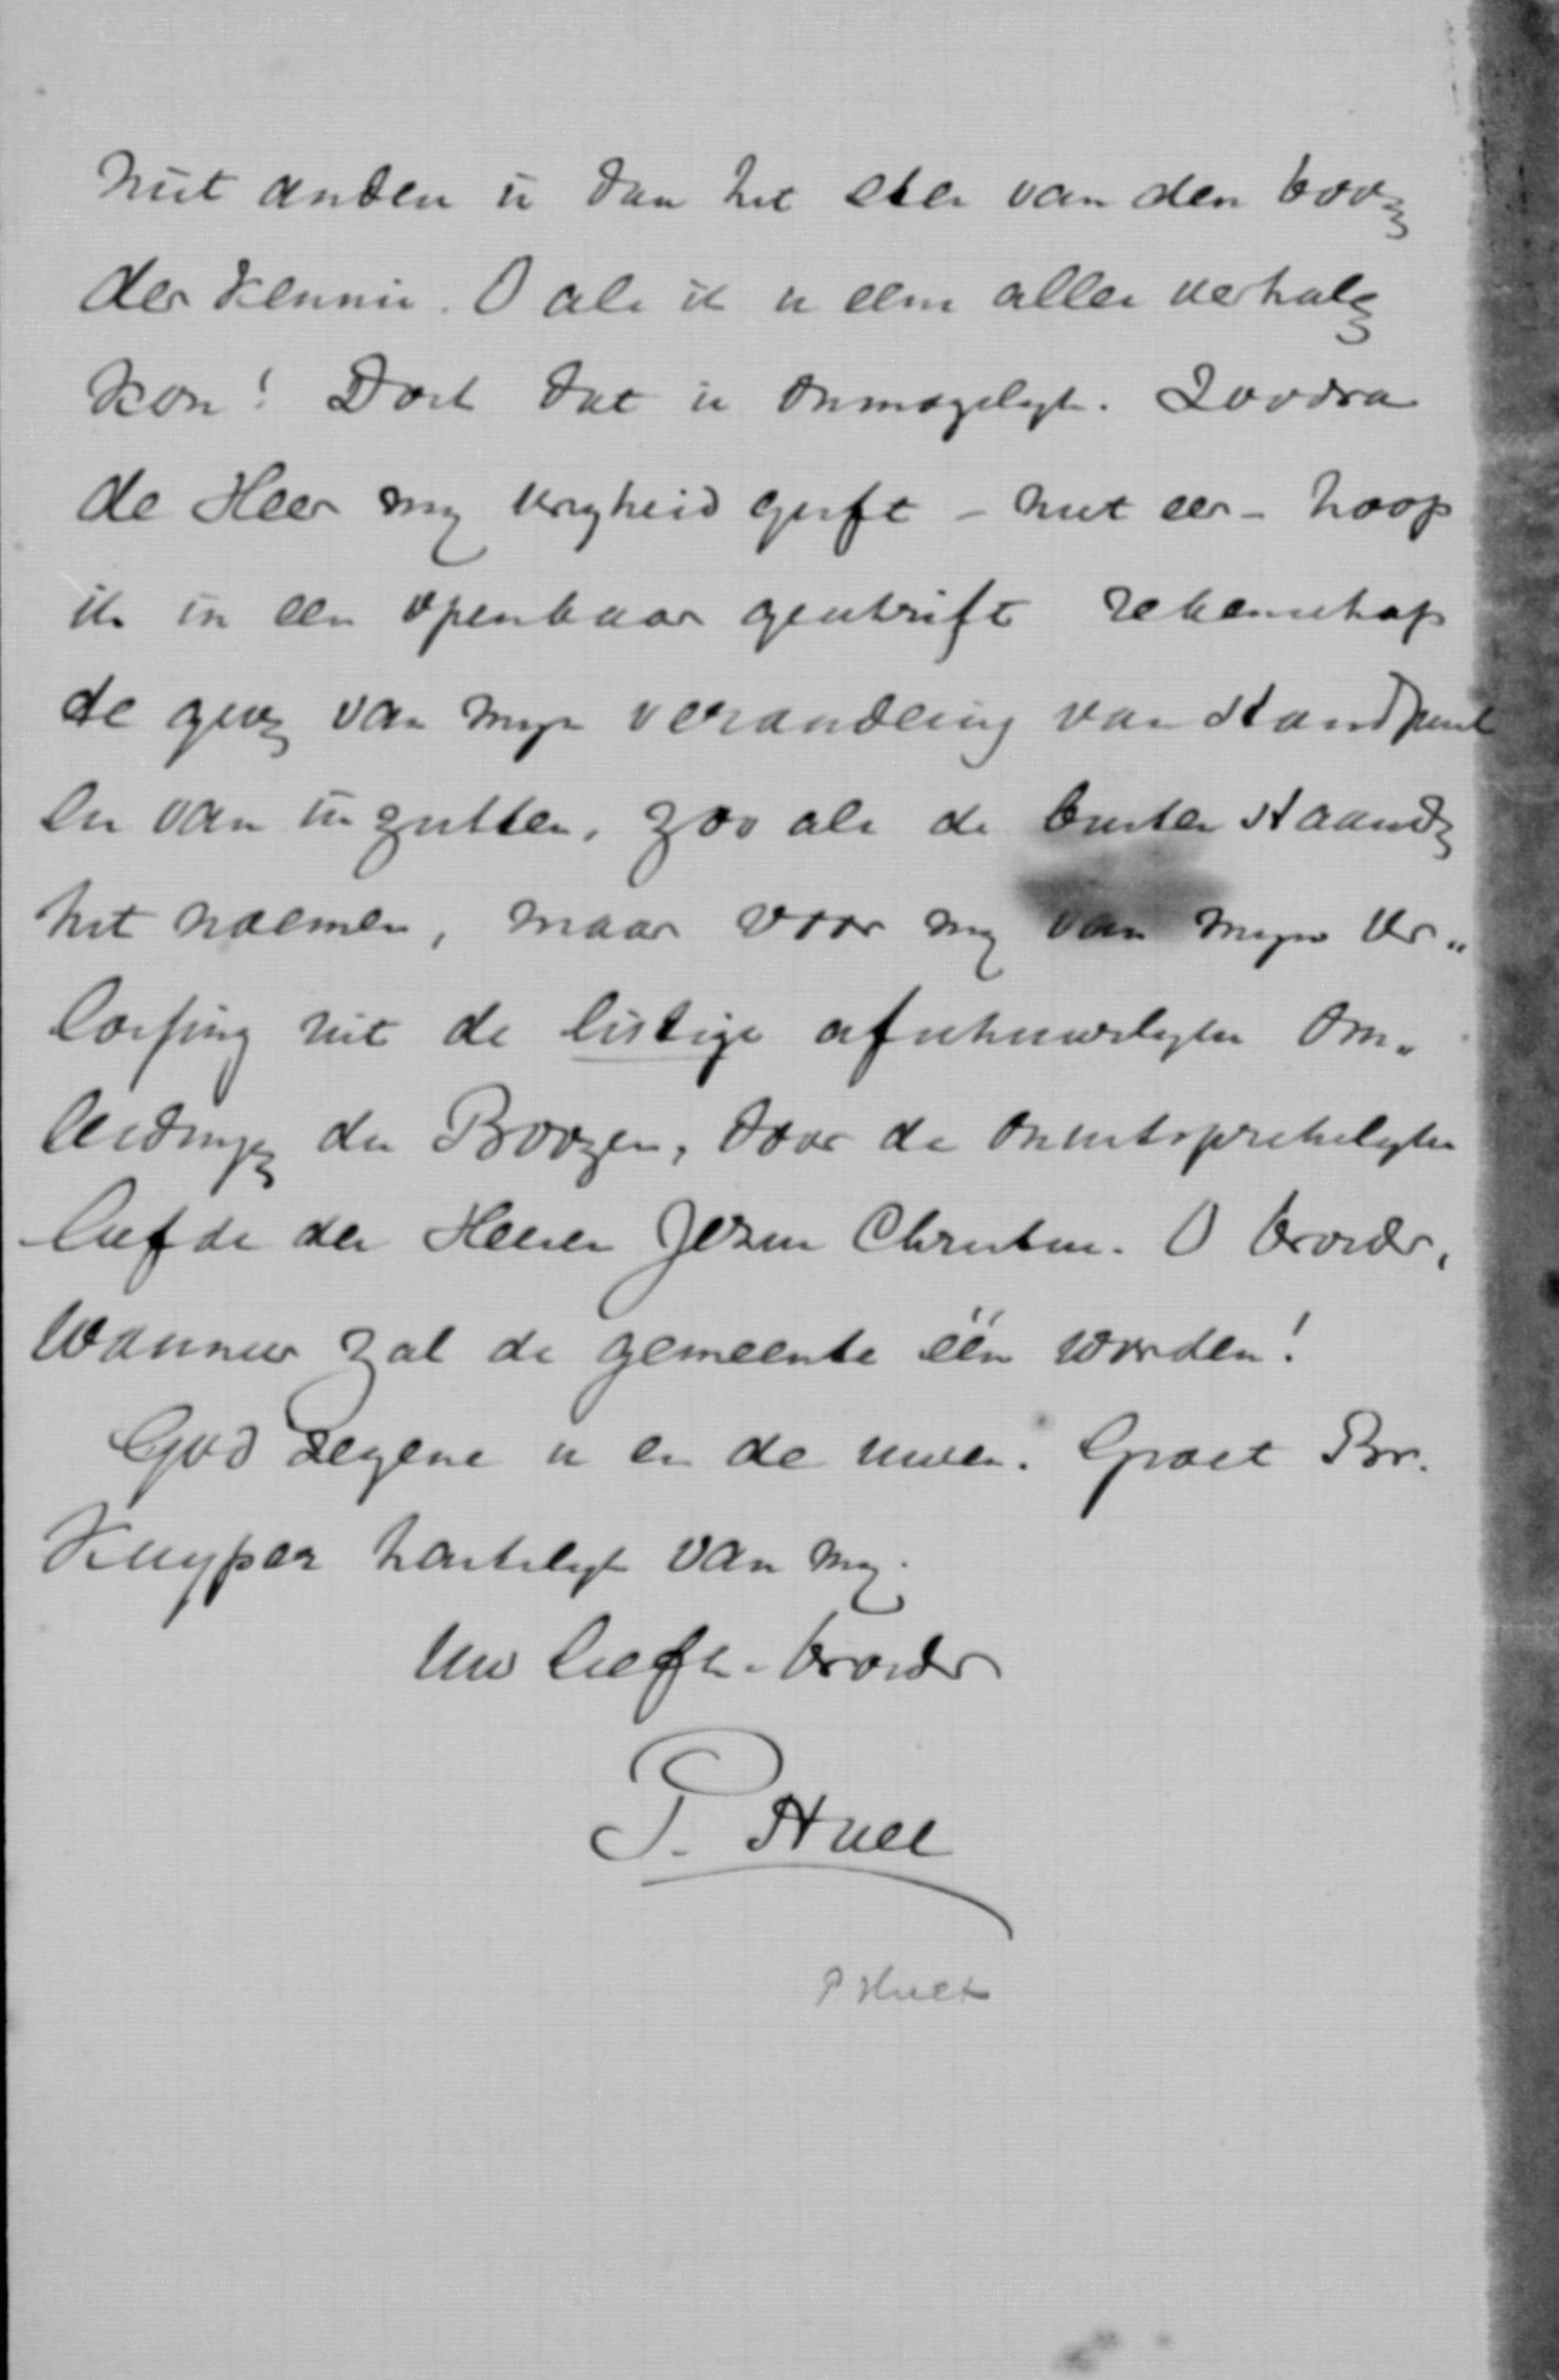 niet anders is dan het eten van den boom
der kennis. O als ik u eens alles verhalen
kon! Doch dat is onmogelyk. Zoodra
de Heer my vryheid geeft – niet eer – hoop
ik in een openbaar geschrift rekenschap
te geven van myn verandering van standpunt
en van inzichten, zoo als de buiten staanden
het noemen, maar voor my van myne ver„
lossing uit de listige afschuwelyke om„
leidingen des Boozen, door de onuitsprekelyke
liefde des Heeren Jezus Christus. O broeder,
Wanneer zal de gemeente één worden!
God zegene u en de uwen. Groet Br.
Kuyper hartelyk van my.
Uw liefh. broeder
P. Huet
P Huet